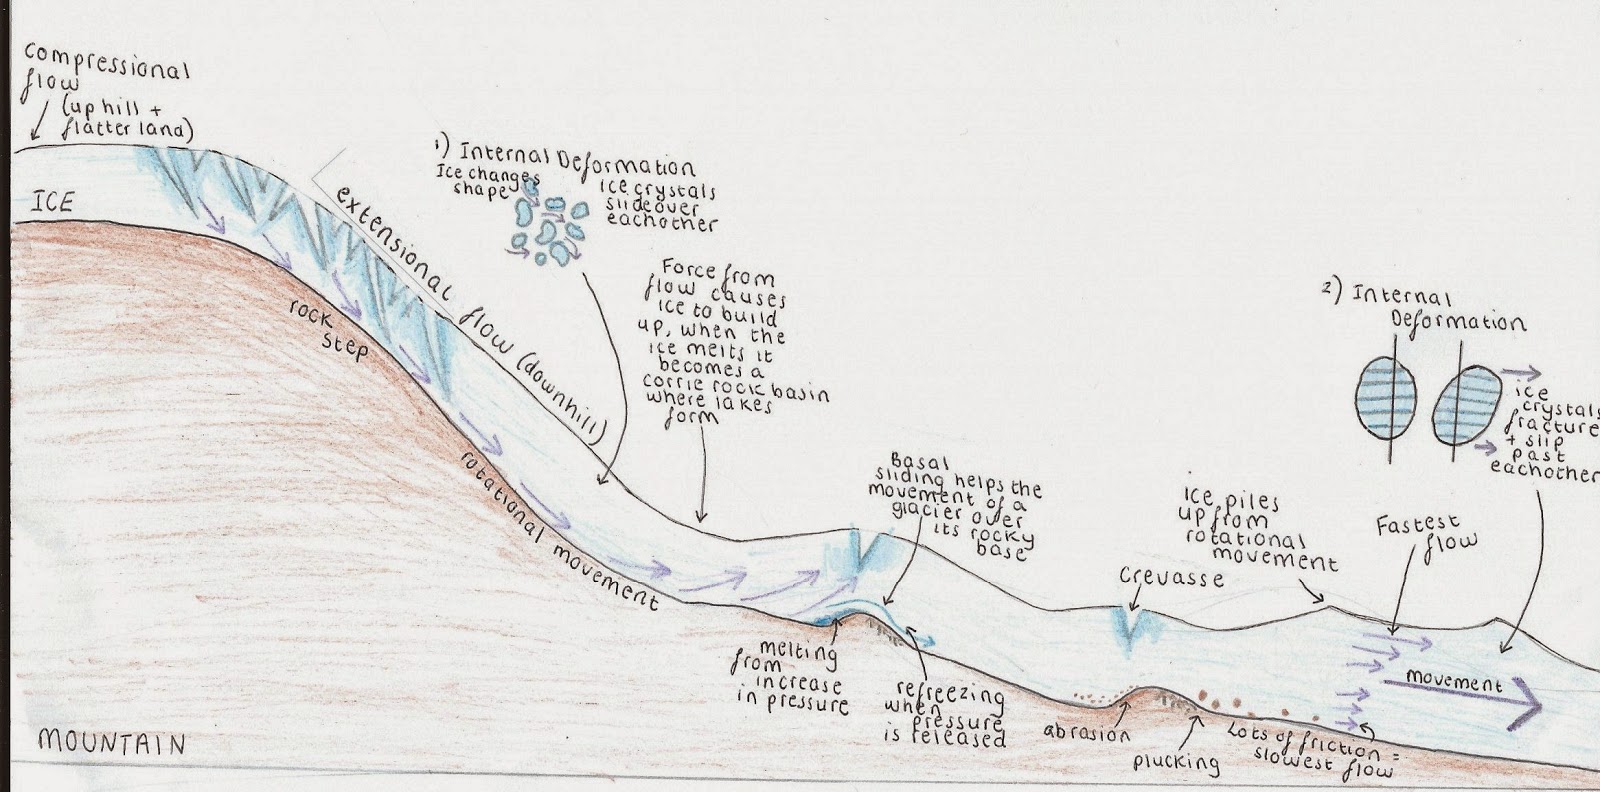 Compressional
flow
(up hill +
flatter land)
ICE
1) Internal Deformation
Ice changes
shape
ice crystals
slide over
eachother
extensional flow (downhill)
rock
step
rotational movement
Force from
flow causes
ice to build
up, when the
ice melts it
becomes a
corrie rock basin
where lakes
form
Basal
sliding helps the
movement of a
glacier over
its rocky
base
melting
from
increase
in pressure
refreezing
when
pressure
is released
Crevasse
ice piles
up from
rotational
movement
Fastest
flow
2) Internal
Deformation
ice
crystals
fracture
+ slip
past
eachother
movement
abrasion
plucking
Lots of friction =
slowest flow
MOUNTAIN